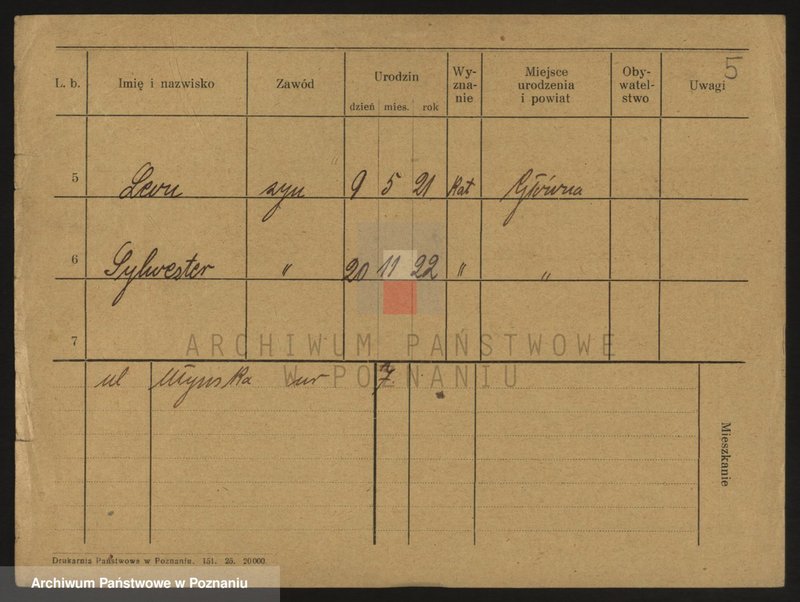 5
L. b. Imię i nazwisko Zawód Urodzin Wy-zna-nie Miejsce urodzenia i powiat Oby-watel-stwo Uwagi
dzień mies. rok
5 Leon syn 9 5 21 Kat Główna
6 Sylwester " 20 11 22 " "
7
ARCHIWUM PAŃSTWOWE
W POZNANIU
ul Młyńska nr 7.
Mieszkanie
Drukarnia Państwowa w Poznaniu. 151. 25. 20000.
Archiwum Państwowe w Poznaniu